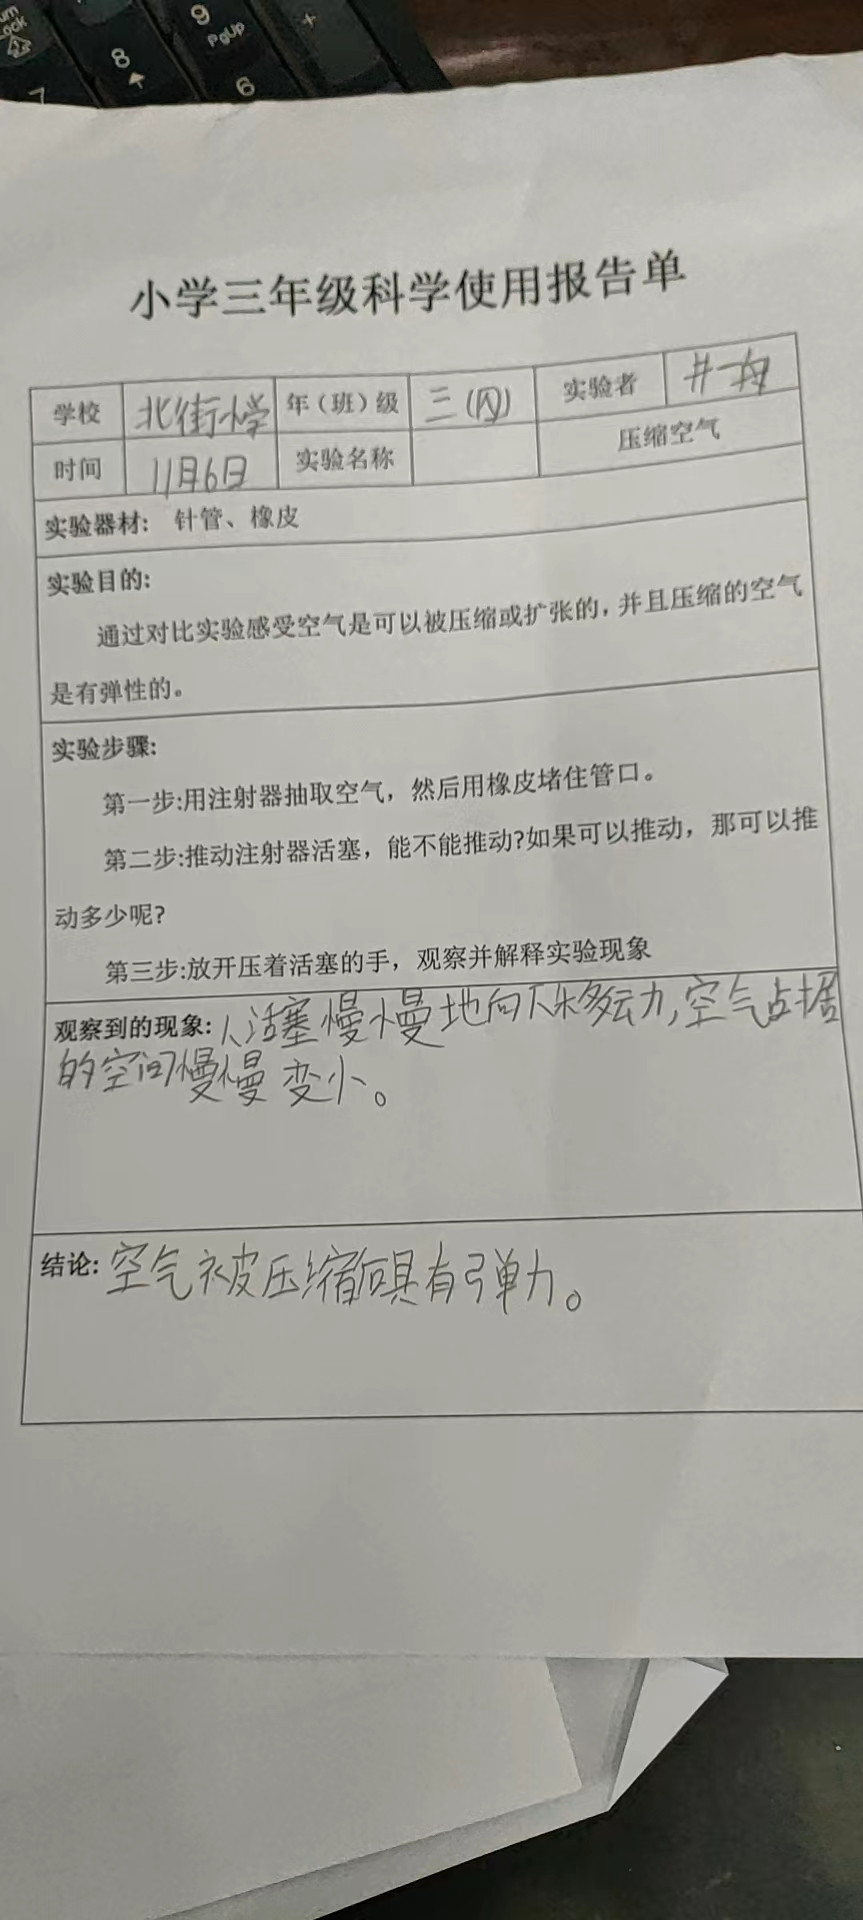 9
PgUp
+
8
7
6
小学三年级科学使用报告单
学校 北街小学 年（班）级 三(四) 实验者
时间 11月6日 实验名称 压缩空气
实验器材: 针管、橡皮
实验目的:
通过对比实验感受空气是可以被压缩或扩张的，并且压缩的空气
是有弹性的。
实验步骤:
第一步:用注射器抽取空气，然后用橡皮堵住管口。
第二步:推动注射器活塞，能不能推动?如果可以推动，那可以推
动多少呢?
第三步:放开压着活塞的手，观察并解释实验现象
观察到的现象: 活塞慢慢地向下移动,空气占据
的空间慢慢变小。
结论: 空气被压缩后具有弹力。